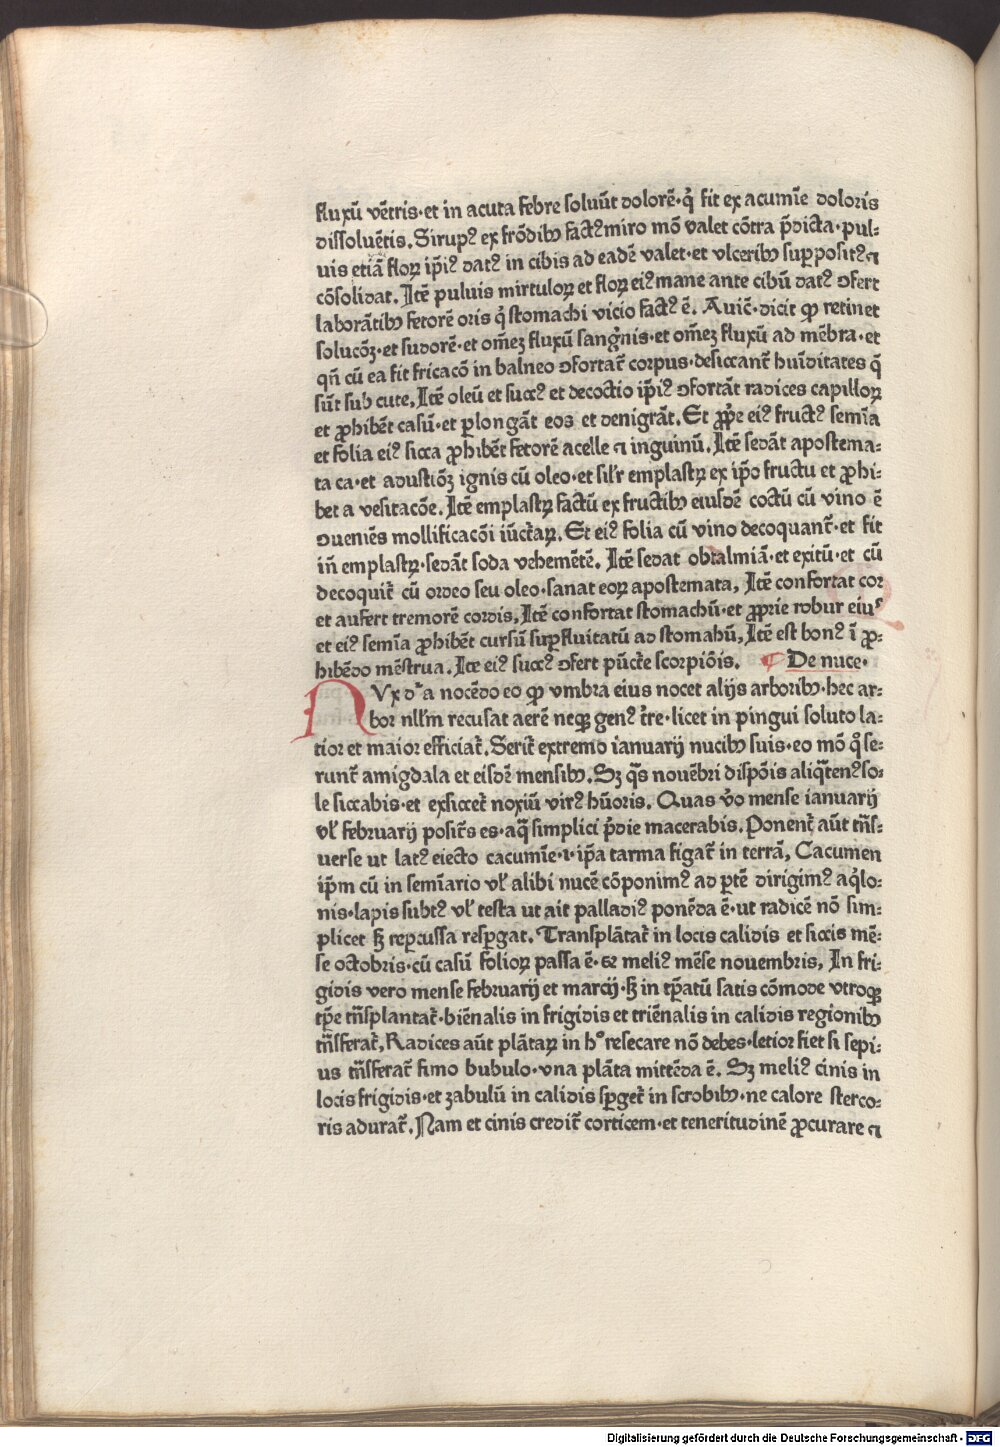 fluxū vētris·et in acuta febre soluūt dolorē·q̇ fit ex acumīe doloris
dissoluētis. Sirupꝰ ex frōdibꝫ factꝰ miro mō valet cōtra p̄dicta·pul⸗
uis etiā floꝝ ip̄iꝰ datꝰ in cibis ad eadē valet·et vlceribꝫ supposit̾ꝰ ⁊
cōsolidat. Itē puluis mirtuloꝝ et floꝝ eiꝰ mane ante cibū datꝰ ɔfert
laborātibꝫ fetorē oris q̇ stomachi vicio factꝰ ē. Auicē·dicit ꝙ retinet
solucōꝫ·et sudorē·et om̄eꝫ fluxū sanġnis·et om̄eꝫ fluxū ad mēbra·et
qn̄ cū ea fit fricacō in balneo ɔfortat̄ corpus·desiccant̄ hūiditates q̄
sūt sub cute. Itē oleū et succꝰ et decoctio ip̄iꝰ ɔfortāt radices capilloꝝ
et ꝓhibēt casū·et ꝑlongāt eos et denigrāt. Et ꝓp̄e eiꝰ fructꝰ semīa
et folia eiꝰ sicca ꝓhibēt fetorē acelle ⁊ inguinū. Itē sedāt apostema⸗
ta ca·et adustiōꝫ ignis cū oleo·et sil̄r emplastꝝ ex ip̄o fructu et ꝓhi⸗
bet a vesitacōe. Itē emplastꝝ factū ex fructibꝫ eiusdē coctū cū vino ē
ɔueniēs mollificacōi iūctaꝝ. Et eiꝰ folia cū vino decoquant̄·et fit
in̄ emplastꝝ·sedāt soda vehemētē. Itē sedat obtalmiā·et exitū·et cū
decoquit̄ cū ordeo seu oleo·sanat eoꝝ apostemata, Itē confortat cor
et aufert tremorē cordis, Itē confortat stomachū·et ꝓprie robur eiuꝰ
et eiꝰ semīa ꝓhibēt cursū suꝑfluitatū ad stomahū, Itē est bonꝰ ī ꝓ⸗
hibēdo mēstrua. Ite eiꝰ succꝰ ɔfert pūcte scorpiōis. De nuce·
NVx d̄a nocēdo eo ꝙ vmbra eius nocet alijs arboribꝫ·hec ar⸗
bor nll̄m recusat aerē neqꝫ genꝰ t̄re·licet in pingui soluto la⸗
tior et maior efficiat̄. Serit̄ extremo ianuarij nucibꝫ suis·eo mō q̇ se⸗
runt̄ amigdala et eisdē mensibꝫ. Sꝫ q̄s nouēbri dispōis aliq̄tenꝰ so⸗
le siccabis·et exsiccet̄ noxiū virꝰ hūoris. Quas v̇o mense ianuarij
vl̄ februarij posit̄s es·aq̄ simplici p̄die macerabis. Ponent̄ aūt tn̄s⸗
uerse ut latꝰ eiecto cacumīe·ı·ip̄a tarma figat̄ in terrā, Cacumen
ip̄m cū in semīario vl̄ alibi nucē cōponimꝰ ad ꝑtē dirigimꝰ aq̇lo⸗
nis·lapis subtꝰ vl̄ testa ut ait palladiꝰ ponēda ē·ut radicē nō sim⸗
plicet sꝫ reꝑcussa resꝑgat. Transplātat̄ in locis calidis et siccis mē⸗
se octobris·cū casū folioꝝ passa ē·sꝫ meliꝰ mēse nouembris, In fri⸗
gidis vero mense februarij et marcij·sꝫ in tꝑatū satis cōmode vtroqꝫ
tꝑe tn̄splantat̄·biēnalis in frigidis et triēnalis in calidis regionibꝫ
tn̄sferat̄, Radices aūt plātaꝝ in hᵒ resecare nō debes·letior fiet si sepi⸗
us tn̄sferat̄ fimo bubulo·vna plāta mittēda ē. Sꝫ meliꝰ cinis in
locis frigidis·et zabulū in calidis sꝑget̄ in scrobibꝫ·ne calore sterco⸗
ris adurat̄. Nam et cinis credit̄ corticem·et teneritudinē ꝓcurare ⁊
Digitalisierung gefördert durch die Deutsche Forschungsgemeinschaft - DFG